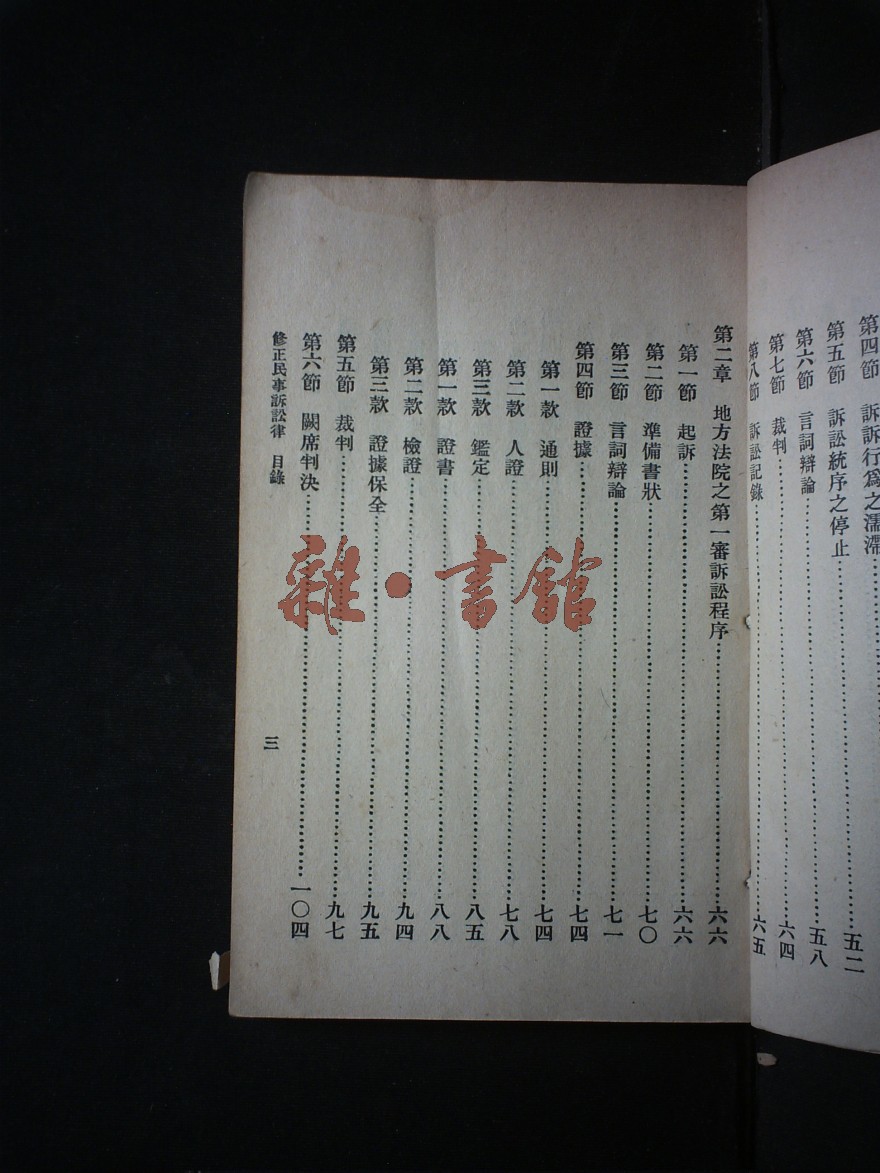 第四節　訴訴行為之濡滯
第五節　訴訟統序之停止……五二
第六節　言詞辯論……五八
第七節　裁判……六四
第八節　訴訟記錄……六五
第二章　地方法院之第一審訴訟程序……六六
第一節　起訴……六六
第二節　準備書狀……七〇
第三節　言詞辯論……七一
第四節　證據……七四
第一款　通則……七四
第二款　人證……七八
第三款　鑑定……八五
第一款　證書……八八
第二款　檢證……九四
第三款　證據保全……九五
第五節　裁判……九七
第六節　闕席判決……一〇四
修正民事訴訟律　目錄
三
雜·書館